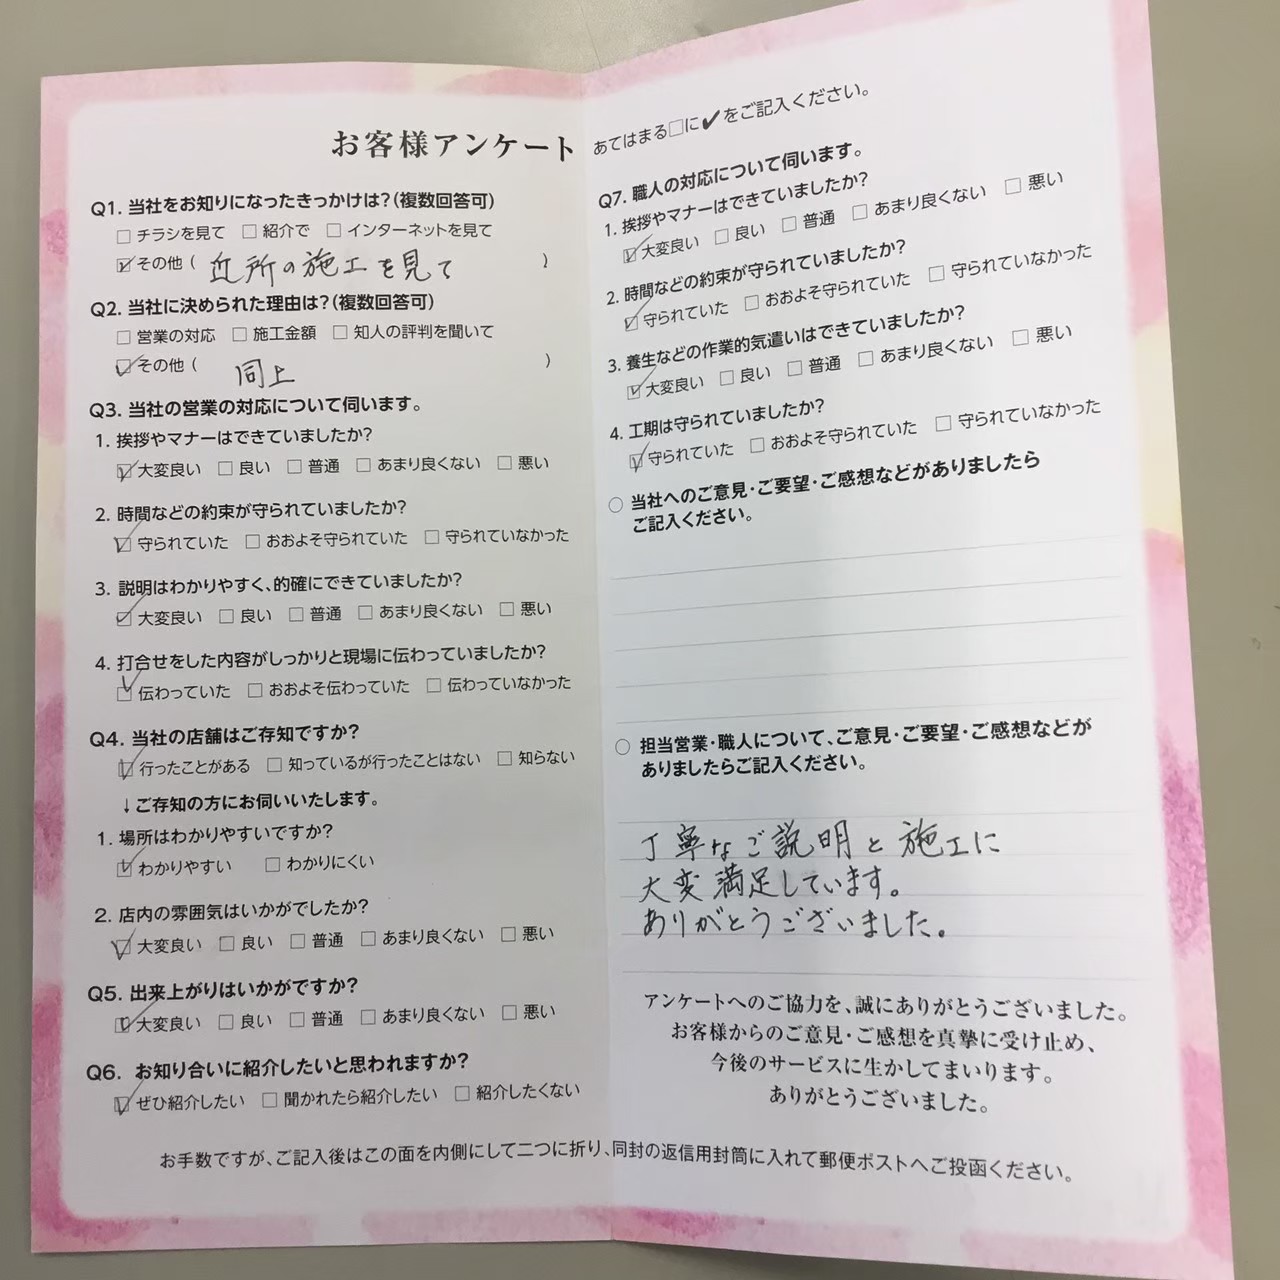 お客様アンケート
あてはまる□に✔をご記入ください。
Q1. 当社をお知りになったきっかけは?(複数回答可)
□ チラシを見て □ 紹介で □ インターネットを見て
☑ その他 ( 近所の施工を見て )
Q2. 当社に決められた理由は?(複数回答可)
□ 営業の対応 □ 施工金額 □ 知人の評判を聞いて
☑ その他 ( 同上 )
Q3. 当社の営業の対応について伺います。
1. 挨拶やマナーはできていましたか?
☑ 大変良い □ 良い □ 普通 □ あまり良くない □ 悪い
2. 時間などの約束が守られていましたか?
☑ 守られていた □ おおよそ守られていた □ 守られていなかった
3. 説明はわかりやすく、的確にできていましたか?
☑ 大変良い □ 良い □ 普通 □ あまり良くない □ 悪い
4. 打合せをした内容がしっかりと現場に伝わっていましたか?
☑ 伝わっていた □ おおよそ伝わっていた □ 伝わっていなかった
Q4. 当社の店舗はご存知ですか?
☑ 行ったことがある □ 知っているが行ったことはない □ 知らない
↓ご存知の方にお伺いいたします。
1. 場所はわかりやすいですか?
☑ わかりやすい □ わかりにくい
2. 店内の雰囲気はいかがでしたか?
☑ 大変良い □ 良い □ 普通 □ あまり良くない □ 悪い
Q5. 出来上がりはいかがですか?
☑ 大変良い □ 良い □ 普通 □ あまり良くない □ 悪い
Q6. お知り合いに紹介したいと思われますか?
☑ ぜひ紹介したい □ 聞かれたら紹介したい □ 紹介したくない
Q7. 職人の対応について伺います。
1. 挨拶やマナーはできていましたか?
☑ 大変良い □ 良い □ 普通 □ あまり良くない □ 悪い
2. 時間などの約束が守られていましたか?
☑ 守られていた □ おおよそ守られていた □ 守られていなかった
3. 養生などの作業的気遣いはできていましたか?
☑ 大変良い □ 良い □ 普通 □ あまり良くない □ 悪い
4. 工期は守られていましたか?
☑ 守られていた □ おおよそ守られていた □ 守られていなかった
○ 当社へのご意見・ご要望・ご感想などがありましたら
ご記入ください。
○ 担当営業・職人について、ご意見・ご要望・ご感想などが
ありましたらご記入ください。
丁寧なご説明と施工に
大変満足しています。
ありがとうございました。
アンケートへのご協力を、誠にありがとうございました。
お客様からのご意見・ご感想を真摯に受け止め、
今後のサービスに生かしてまいります。
ありがとうございました。
お手数ですが、ご記入後はこの面を内側にして二つに折り、同封の返信用封筒に入れて郵便ポストへご投函ください。